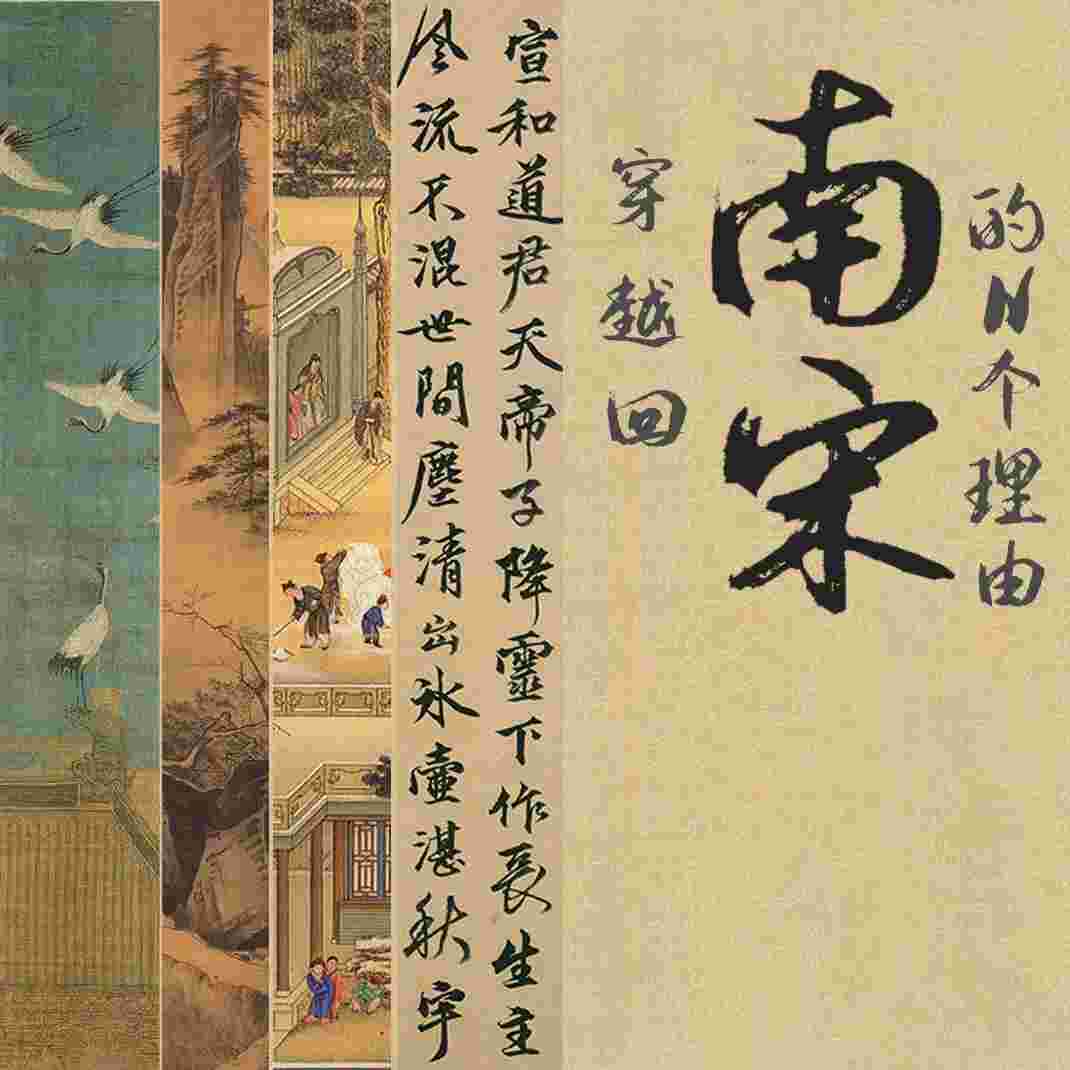 穿越回
南宋
的N个理由
宣和道君天帝子降靈下作長生主
風流不混世間塵清出氷壺湛秋宇